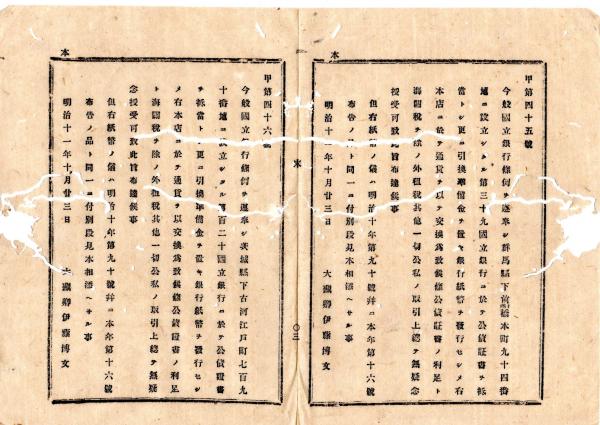 本
甲第四十五號
今般國立銀行條例ヲ遵奉シ群馬縣下前橋本町九十四番
地ニ設立シタル第三十九國立銀行ニ於テ公債証書ヲ抵
當トシ更ニ引換準備金ヲ置キ銀行紙幣ヲ發行セシメ右
本店ニ於テ通貨ヲ以テ交換爲致候條公債証書ノ利足ト
海關税ヲ除ノ外租税其他一切公私ノ取引上總テ無疑念
授受可致此旨布達候事
但右紙幣ノ儀ハ明治十年第九十號并ニ本年第十六號
布告ノ品ト同一ニ付別段見本相添ヘサル事
明治十一年十月廿三日
大藏卿伊藤博文
本
甲第四十六號
今般國立銀行條例ヲ遵奉シ茨城縣下古河江戸町七百九
十番地ニ設立シタル第百二十國立銀行ニ於テ公債證書
ヲ抵當トシ更ニ引換準備金ヲ置キ銀行紙幣ヲ發行セシ
メ右本店ニ於テ通貨ヲ以交換爲致候條公債證書ノ利足
ト海關税ヲ除ノ外租税其他一切公私ノ取引上總テ無疑
念授受可致此旨布達候事
但右紙幣ノ儀ハ明治十年第九十號并ニ本年第十六號
布告ノ品ト同一ニ付別段見本相添ヘサル事
明治十一年十月廿三日
大藏卿伊藤博文